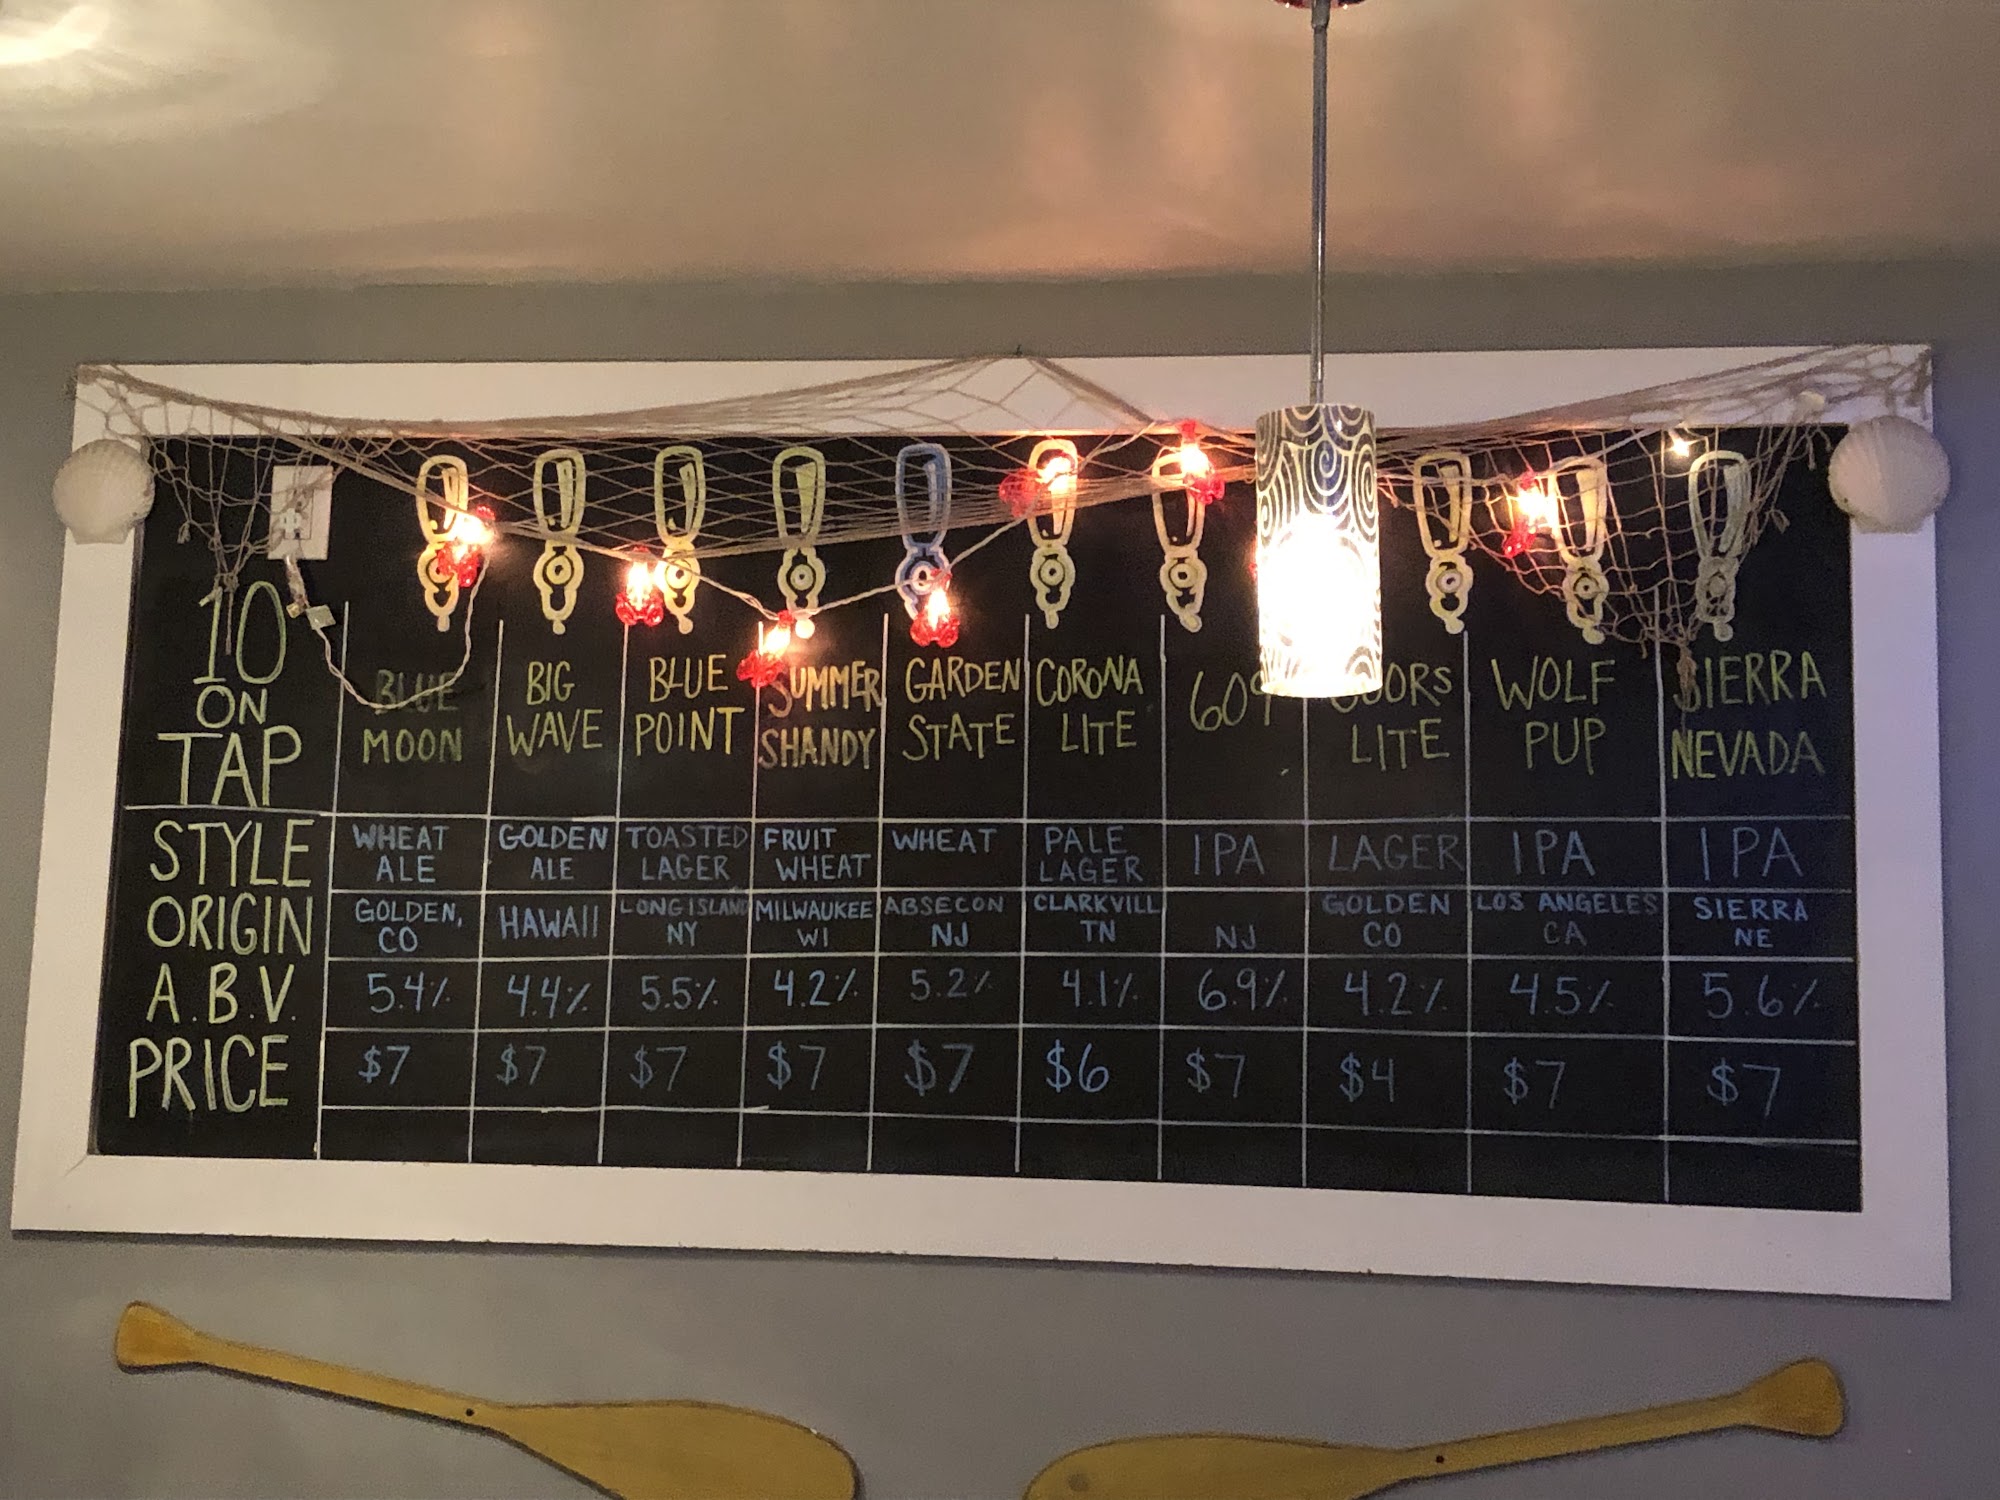 10
ON
TAP
BLUE
MOON
BIG
WAVE
BLUE
POINT
SUMMER
SHANDY
GARDEN
STATE
CORONA
LITE
609
COORS
LITE
WOLF
PUP
SIERRA
NEVADA
STYLE
WHEAT
ALE
GOLDEN
ALE
TOASTED
LAGER
FRUIT
WHEAT
WHEAT
PALE
LAGER
IPA
LAGER
IPA
IPA
ORIGIN
GOLDEN,
CO
HAWAII
LONG ISLAND
NY
MILWAUKEE
WI
ABSECON
NJ
CLARKVILL
TN
NJ
GOLDEN
CO
LOS ANGELES
CA
SIERRA
NE
A.B.V.
5.4%
4.4%
5.5%
4.2%
5.2%
4.1%
6.9%
4.2%
4.5%
5.6%
PRICE
$7
$7
$7
$7
$7
$6
$7
$4
$7
$7